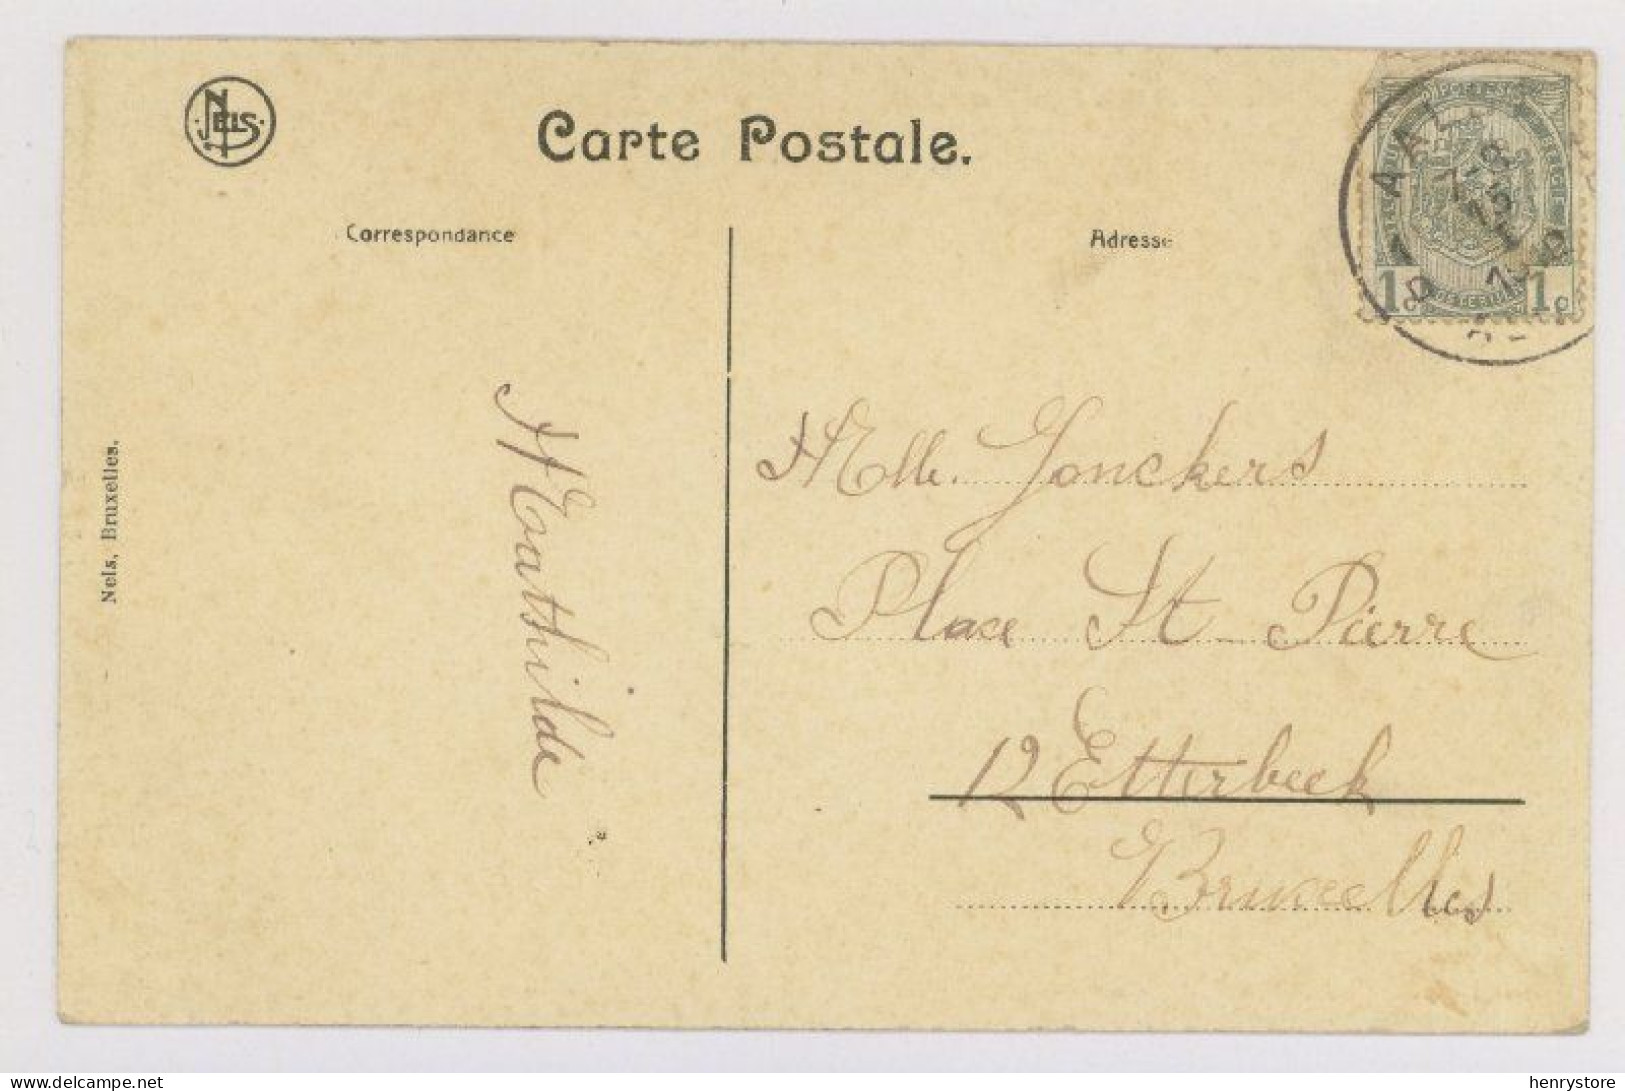 NELS
Carte Postale.
Correspondance
Adresse
POSTES
BELGIË
1c 1c
7-8
15
Nels, Bruxelles.
Mathilde
Melle. Jonckers
Place St Pierre
12 Etterbeek
Bruxelles
delcampe.net
henrystore